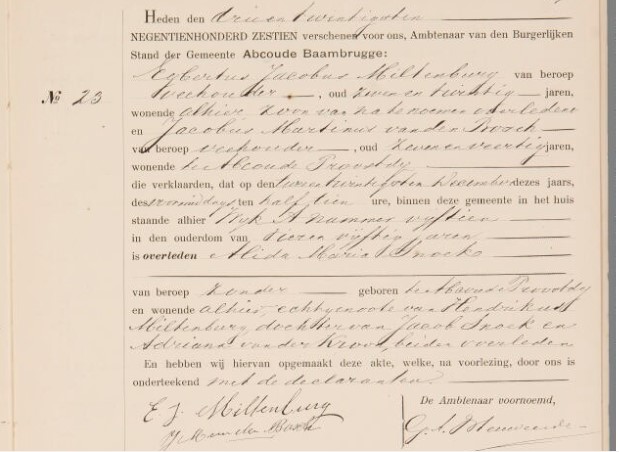 Heden den drie en twintigsten
NEGENTIENHONDERD ZESTIEN verschenen voor ons, Ambtenaar van den Burgerlijken
Stand der Gemeente Abcoude Baambrugge:
Egbertus Jacobus Miltenburg van beroep
No 23 veehouder, oud zeven en twintig jaren,
wonende alhier, zoon van na te noemen overledene
en Jacobus Martinus van den Bosch
van beroep veehouder, oud zeven en veertig jaren,
wonende te Abcoude Proostdy
die verklaarden, dat op den twee en twintigsten December dezes jaars,
des voormiddags ten half tien ure, binnen deze gemeente in het huis
staande alhier Wyk A nummer vyftien
in den ouderdom van vier en vyftig jaren
is overleden Alida Maria Snoek
van beroep zonder geboren te Abcoude Proostdy
en wonende alhier, echtgenoote van Hendrikus
Miltenburg, dochter van Jacob Snoek en
Adriana van der Kroon, beiden overleden
En hebben wij hiervan opgemaakt deze akte, welke, na voorlezing, door ons is
onderteekend met de declaranten.
E J. Miltenburg
De Ambtenaar voornoemd,
J M van den Bosch